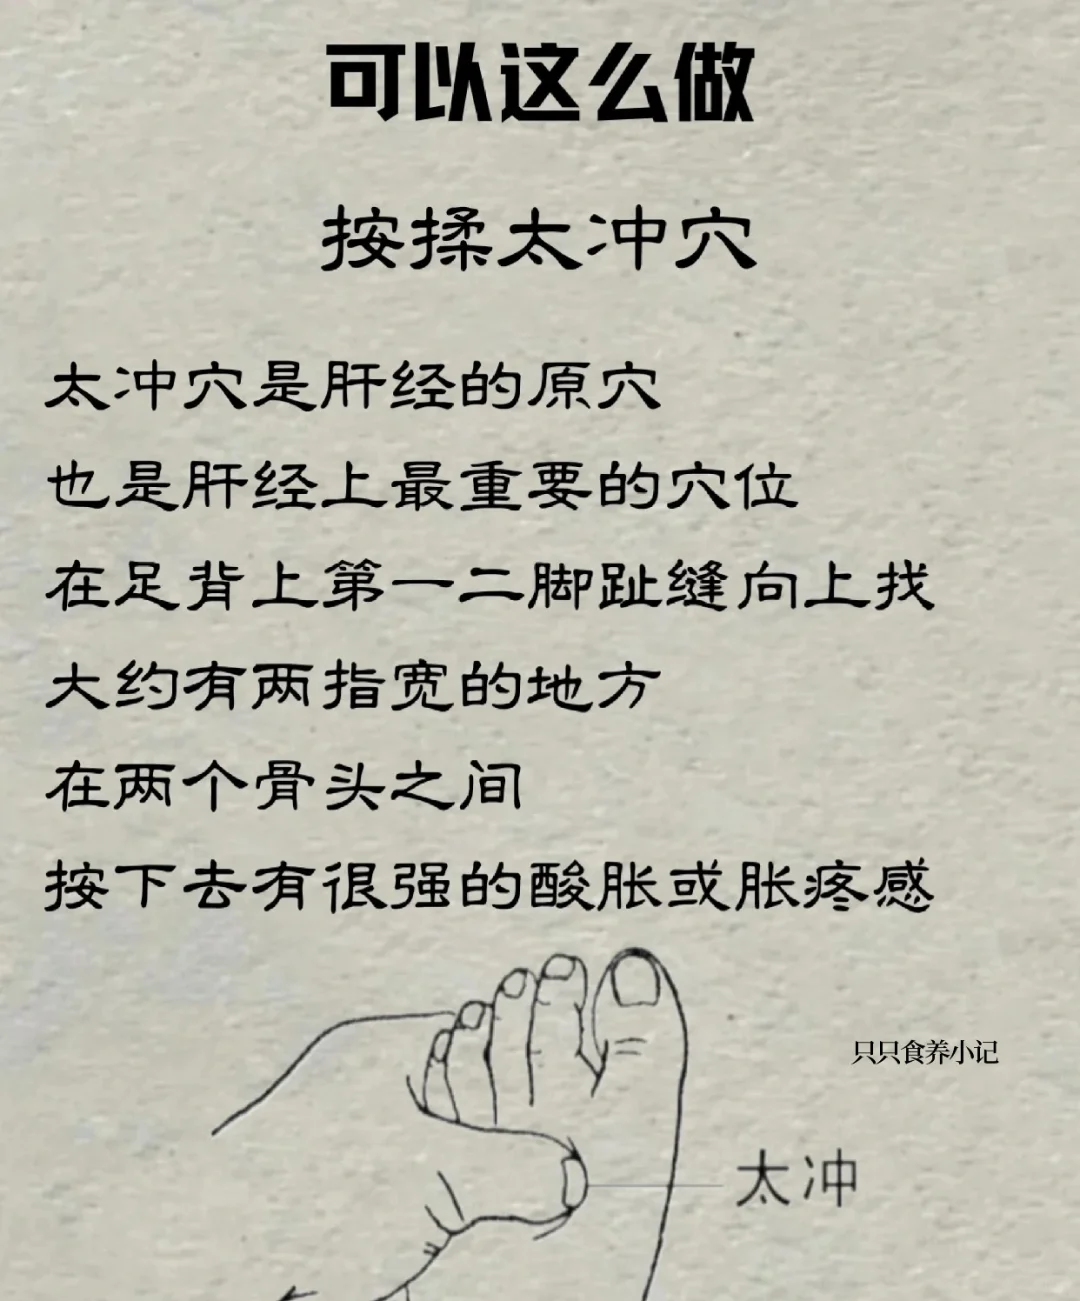 可以这么做
按揉太冲穴
太冲穴是肝经的原穴
也是肝经上最重要的穴位
在足背上第一二脚趾缝向上找
大约有两指宽的地方
在两个骨头之间
按下去有很强的酸胀或胀疼感
只只食养小记
太冲